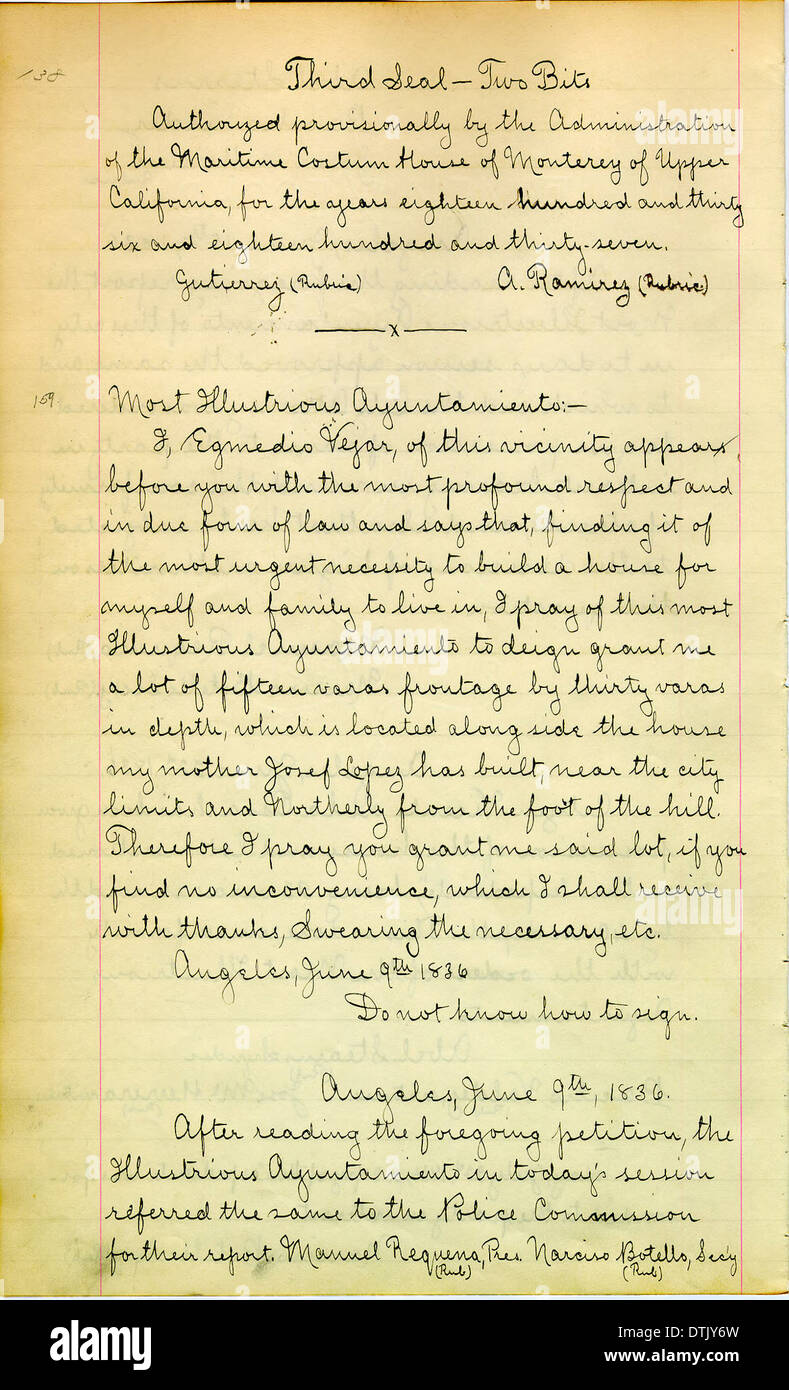 138
Third Seal — Two Bits
Authorized provisionally by the Administration
of the Maritime Costum House of Monterey of Upper
California, for the years eighteen hundred and thirty
six and eighteen hundred and thirty-seven.
Gutierrez (Rubric) A. Ramirez (Rubric)
x
159
Most Illustrious Ayuntamiento:—
I, Egmedio Vejar, of this vicinity appears
before you with the most profound respect and
in due form of law and says that, finding it of
the most urgent necessity to build a house for
myself and family to live in, I pray of this most
Illustrious Ayuntamiento to deign grant me
a lot of fifteen varas frontage by thirty varas
in depth, which is located along side the house
my mother Josef Lopez has built, near the city
limits and Northerly from the foot of the hill.
Therefore I pray you grant me said lot, if you
find no inconvenience, which I shall receive
with thanks, Swearing the necessary, etc.
Angeles, June 9th 1836
Do not know how to sign.
Angeles, June 9th, 1836.
After reading the foregoing petition, the
Illustrious Ayuntamiento in today's session
referred the same to the Police Commission
for their report. Manuel Requena, Pres. Narciso Botello, Secy
(Rub) (Rub)
alamy
Image ID: DTJY6W
www.alamy.com